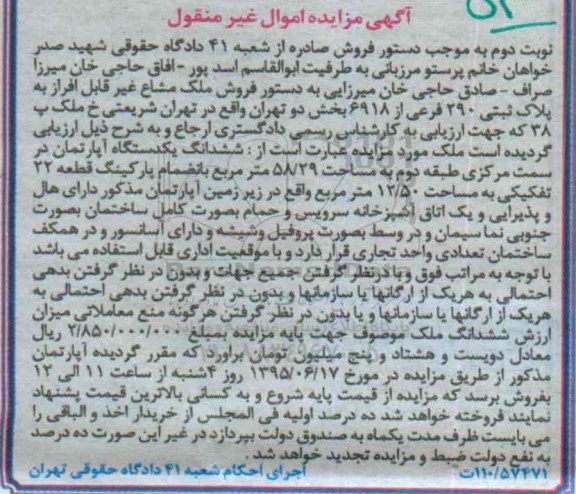 آگهی مزایده اموال غیر منقول
نوبت دوم به موجب دستور فروش صادره از شعبه ۴۱ دادگاه حقوقی شهید صدر
خواهان خانم پرستو مرزبانی به طرفیت ابوالقاسم اسد پور -افاق حاجی خان میرزا
صراف - صادق حاجی خان میرزایی به دستور فروش ملک مشاع غیر قابل افراز به
پلاک ثبتی ۲۹۰ فرعی از ۶۹۱۸ بخش دو تهران واقع در تهران شریعتی خ ملک پ
۳۸ که جهت ارزیابی به کارشناس رسمی دادگستری ارجاع و به شرح ذیل ارزیابی
گردیده است ملک مورد مزایده عبارت است از : ششدانگ یکدستگاه آپارتمان در
سمت مرکزی طبقه دوم به مساحت ۵۸/۲۹ متر مربع بانضمام پارکینگ قطعه ۲۲
تفکیکی به مساحت ۱۲/۵۰ متر مربع واقع در زیر زمین آپارتمان مذکور دارای هال
و پذیرایی و یک اتاق آشپزخانه سرویس و حمام بصورت کامل ساختمان بصورت
جنوبی نما سیمان و در وسط بصورت پروفیل وشیشه و دارای آسانسور و در همکف
ساختمان تعدادی واحد تجاری قرار دارد و با موقعیت اداری قابل استفاده می باشد
با توجه به مراتب فوق و با در نظر گرفتن جمیع جهات و بدون در نظر گرفتن بدهی
احتمالی به هریک از ارگانها یا سازمانها و بدون در نظر گرفتن بدهی احتمالی به
هریک از ارگانها یا سازمانها و یا بدون در نظر گرفتن هرگونه منع معاملاتی میزان
ارزش ششدانگ ملک موصوف جهت پایه مزایده بمبلغ ۲/۸۵۰/۰۰۰/۰۰۰ ریال
معادل دویست و هشتاد و پنج میلیون تومان براورد که مقرر گردیده آپارتمان
مذکور از طریق مزایده در مورخ ۱۳۹۵/۰۶/۱۷ روز ۴شنبه از ساعت ۱۱ الی ۱۲
بفروش برسد که مزایده از قیمت پایه شروع و به کسانی بالاترین قیمت پشنهاد
نمایند فروخته خواهد شد ده درصد اولیه فی المجلس از خریدار اخذ و الباقی را
می بایست ظرف مدت یکماه به صندوق دولت بپردازد در غیر این صورت ده درصد
به نفع دولت ضبط و مزایده تجدید خواهد شد .
۱۱۰/۵۷۴۷۱ت اجرای احکام شعبه ۴۱ دادگاه حقوقی تهران